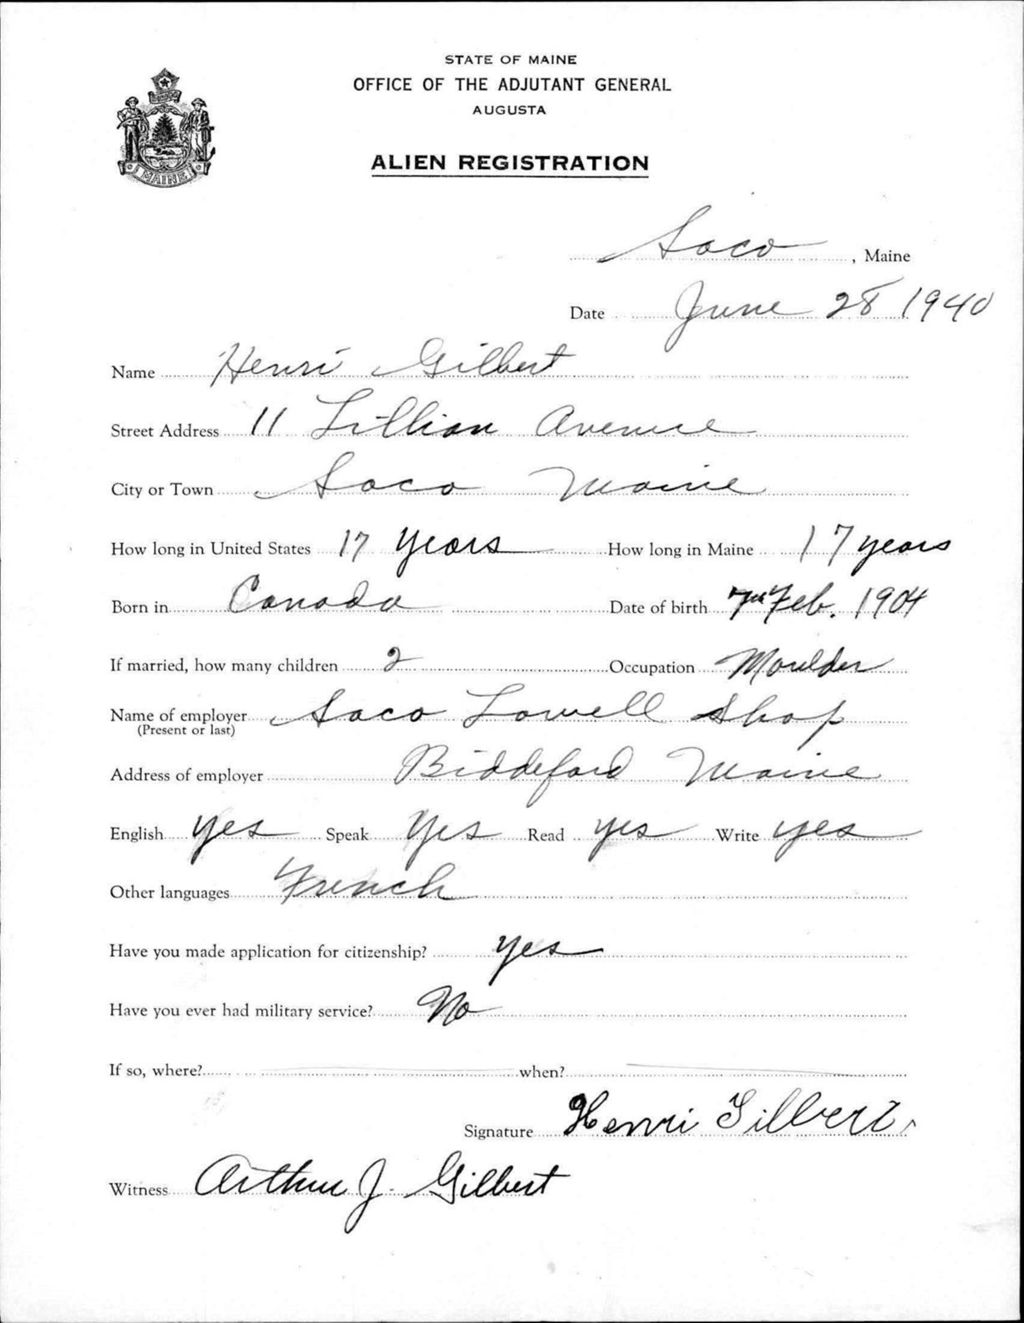 STATE OF MAINE
OFFICE OF THE ADJUTANT GENERAL
AUGUSTA
MAINE
ALIEN REGISTRATION
Saco, Maine
Date June 28 1940
Name Henri Gilbert
Street Address 11 Lillian Avenue
City or Town Saco Maine
How long in United States 17 years How long in Maine 17 years
Born in Canada Date of birth 7th Feb. 1904
If married, how many children 2 Occupation Moulder
Name of employer Saco Lowell Shop
(Present or last)
Address of employer Biddeford Maine
English yes Speak yes Read yes Write yes
Other languages French
Have you made application for citizenship? yes
Have you ever had military service? No
If so, where? when?
Signature Henri Gilbert
Witness Arthur J. Gilbert